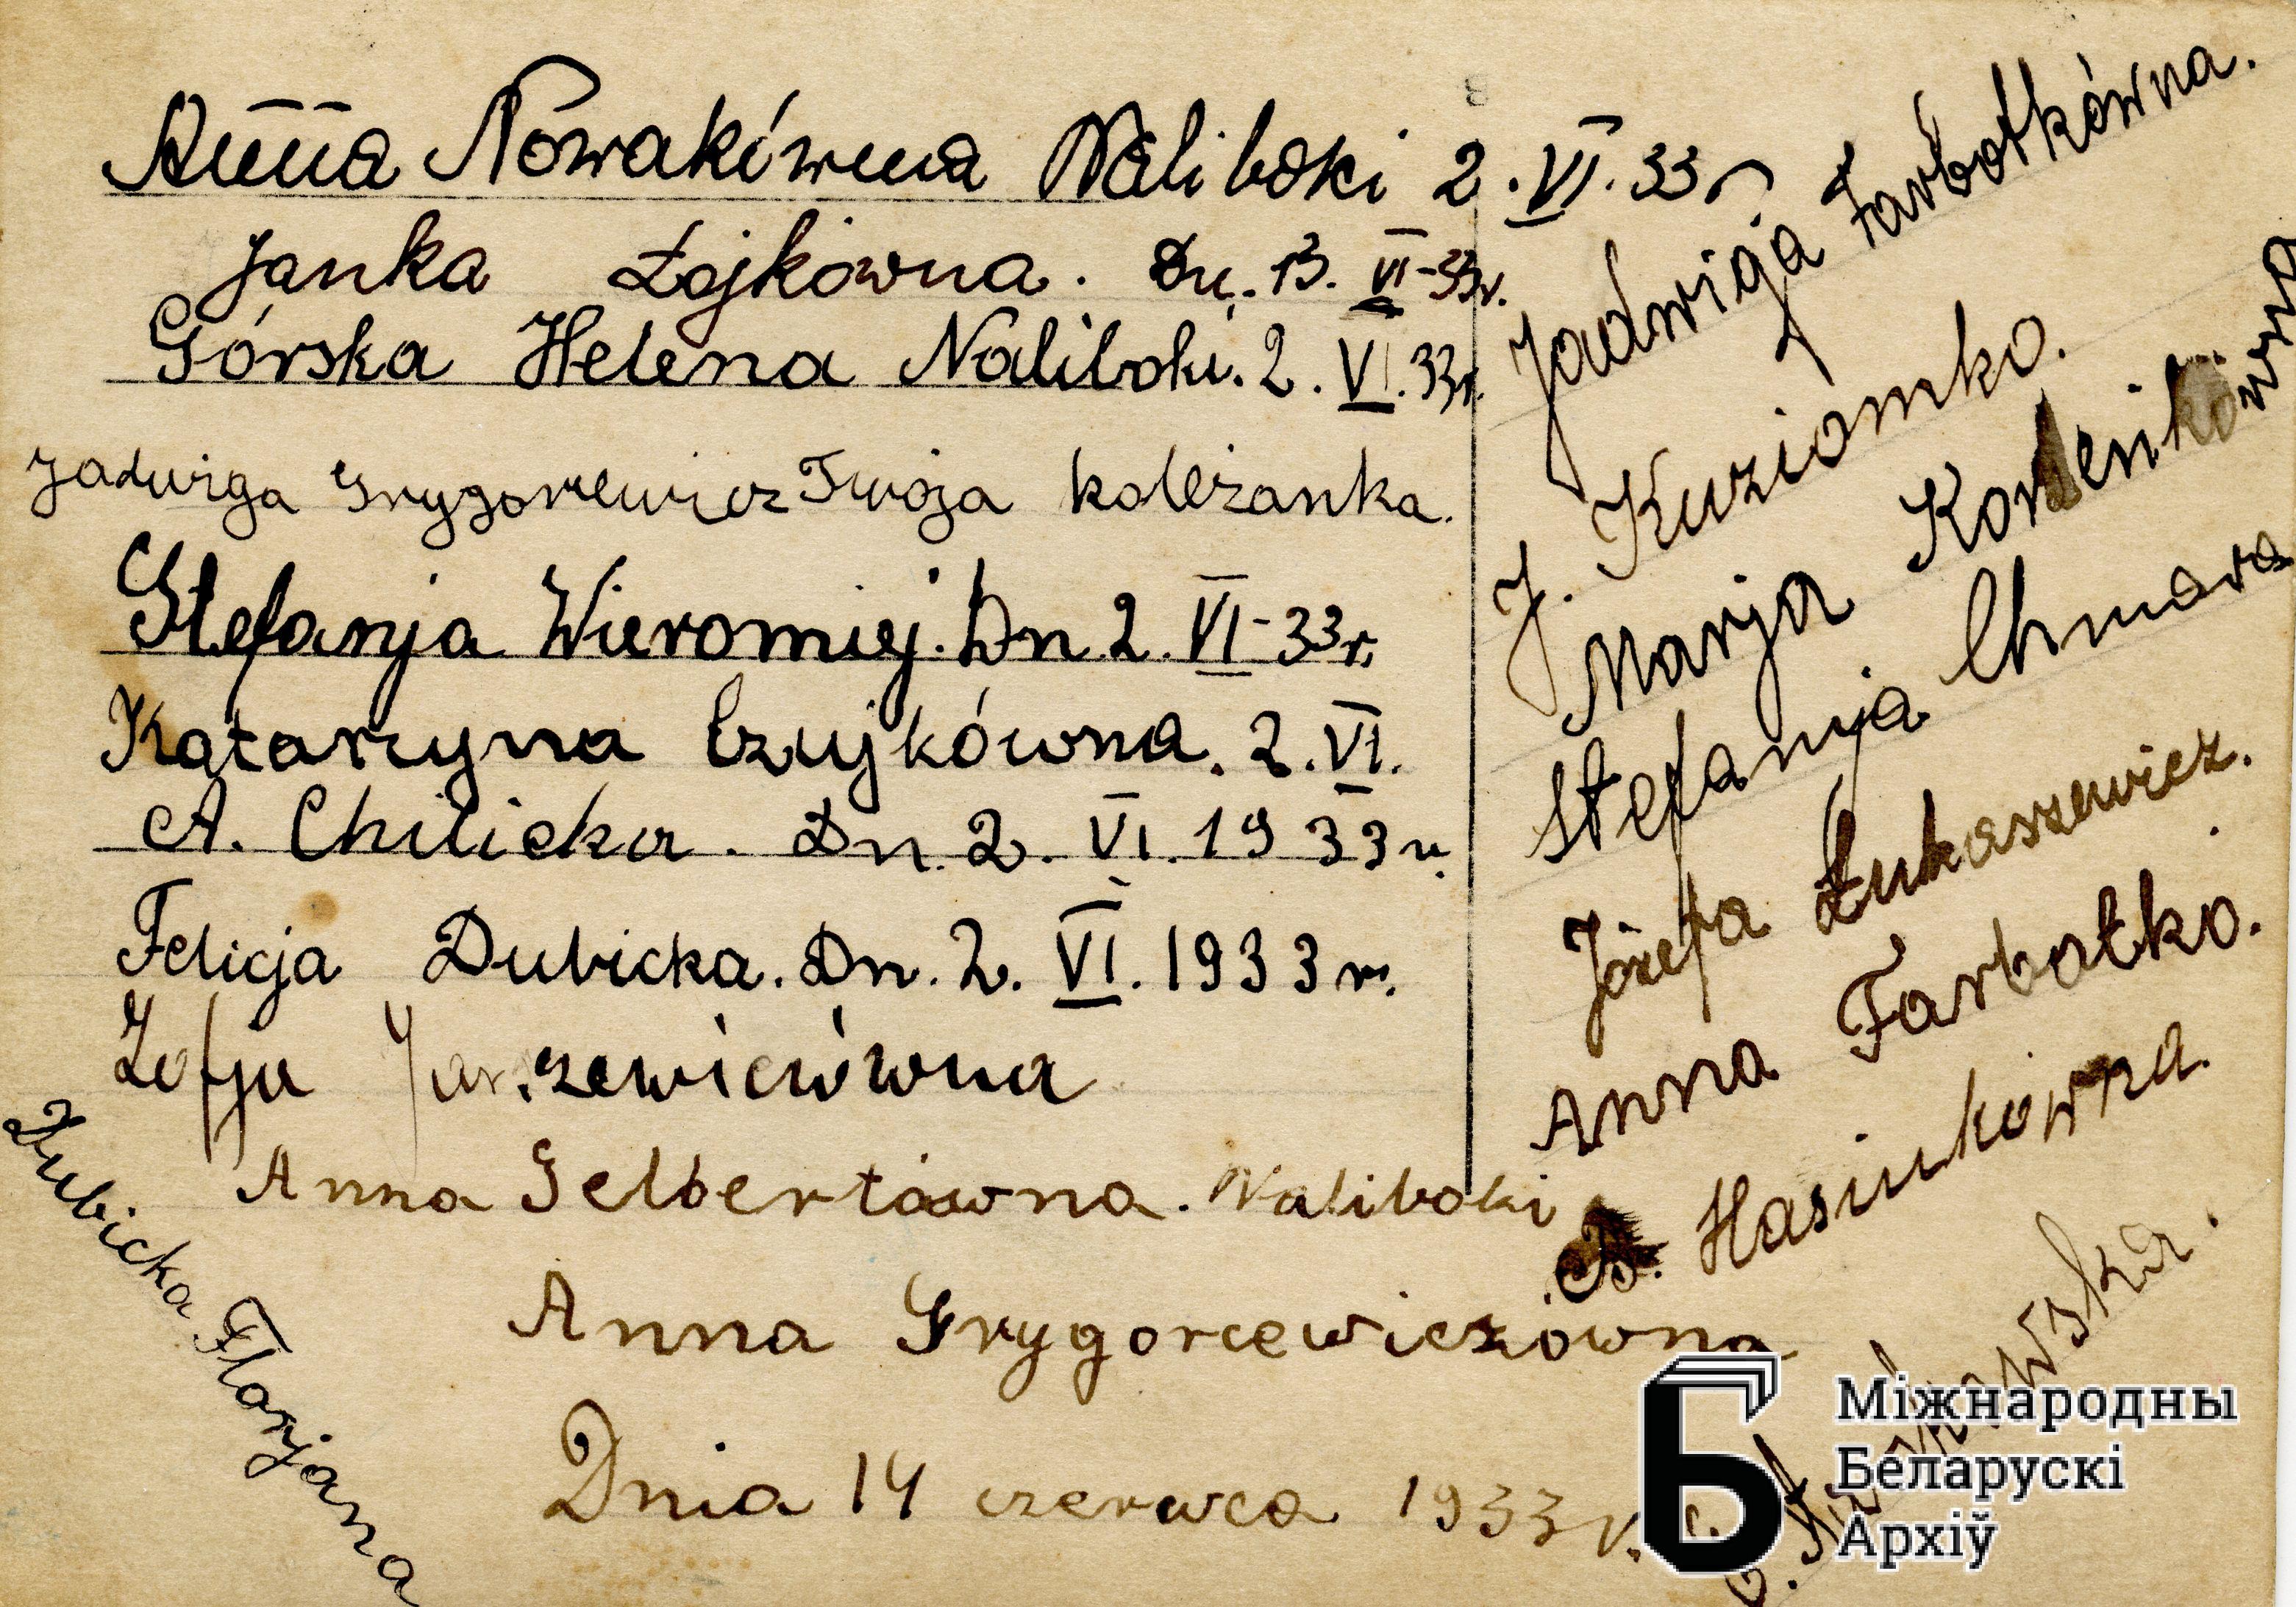 Anna Nowakówna Naliboki 2. VI. 33 r.
Janka Łojkówna. Dn. 13. VI-33r.
Górska Helena Naliboki. 2. VI. 33r.
Jadwiga Grygorcewicz Twoja koleżanka.
Stefanja Wieromiej. Dn. 2. VI-33r.
Katarzyna Czujkówna. 2. VI.
A. Chilicka. Dn. 2. VI. 1933 r.
Felicja Dubicka. Dn. 2. VI. 1933 r.
Zofja
Anna Gelbertówna. Naliboki
Anna Grygorcewiczówna
Dnia 14 czerwca 1933 r.
Dubicka Florjana
Jadwiga Farbotkówna.
J. Kuziomko.
Marja
Stefanja Chmara
Józefa Łukaszewicz.
Anna Farbotko.
B. Hasiukówna.
Міжнародны
Беларускі
Архіў